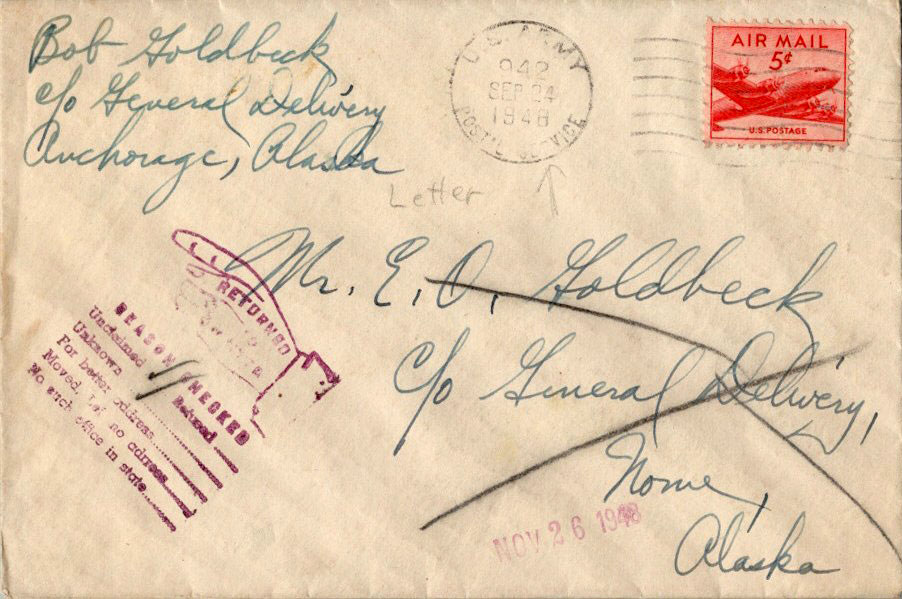 Bob Goldbeck
c/o General Delivery
Anchorage, Alaska
U.S. ARMY
942
SEP 24
1948
POSTAL SERVICE
AIR MAIL
5¢
U.S. POSTAGE
Letter
Mr. E. O. Goldbeck
c/o General Delivery,
Nome,
Alaska
RETURNED
REASON CHECKED
Unclaimed Refused
Unknown
For better address
Moved, Left no address
No such office in state
NOV 26 1948